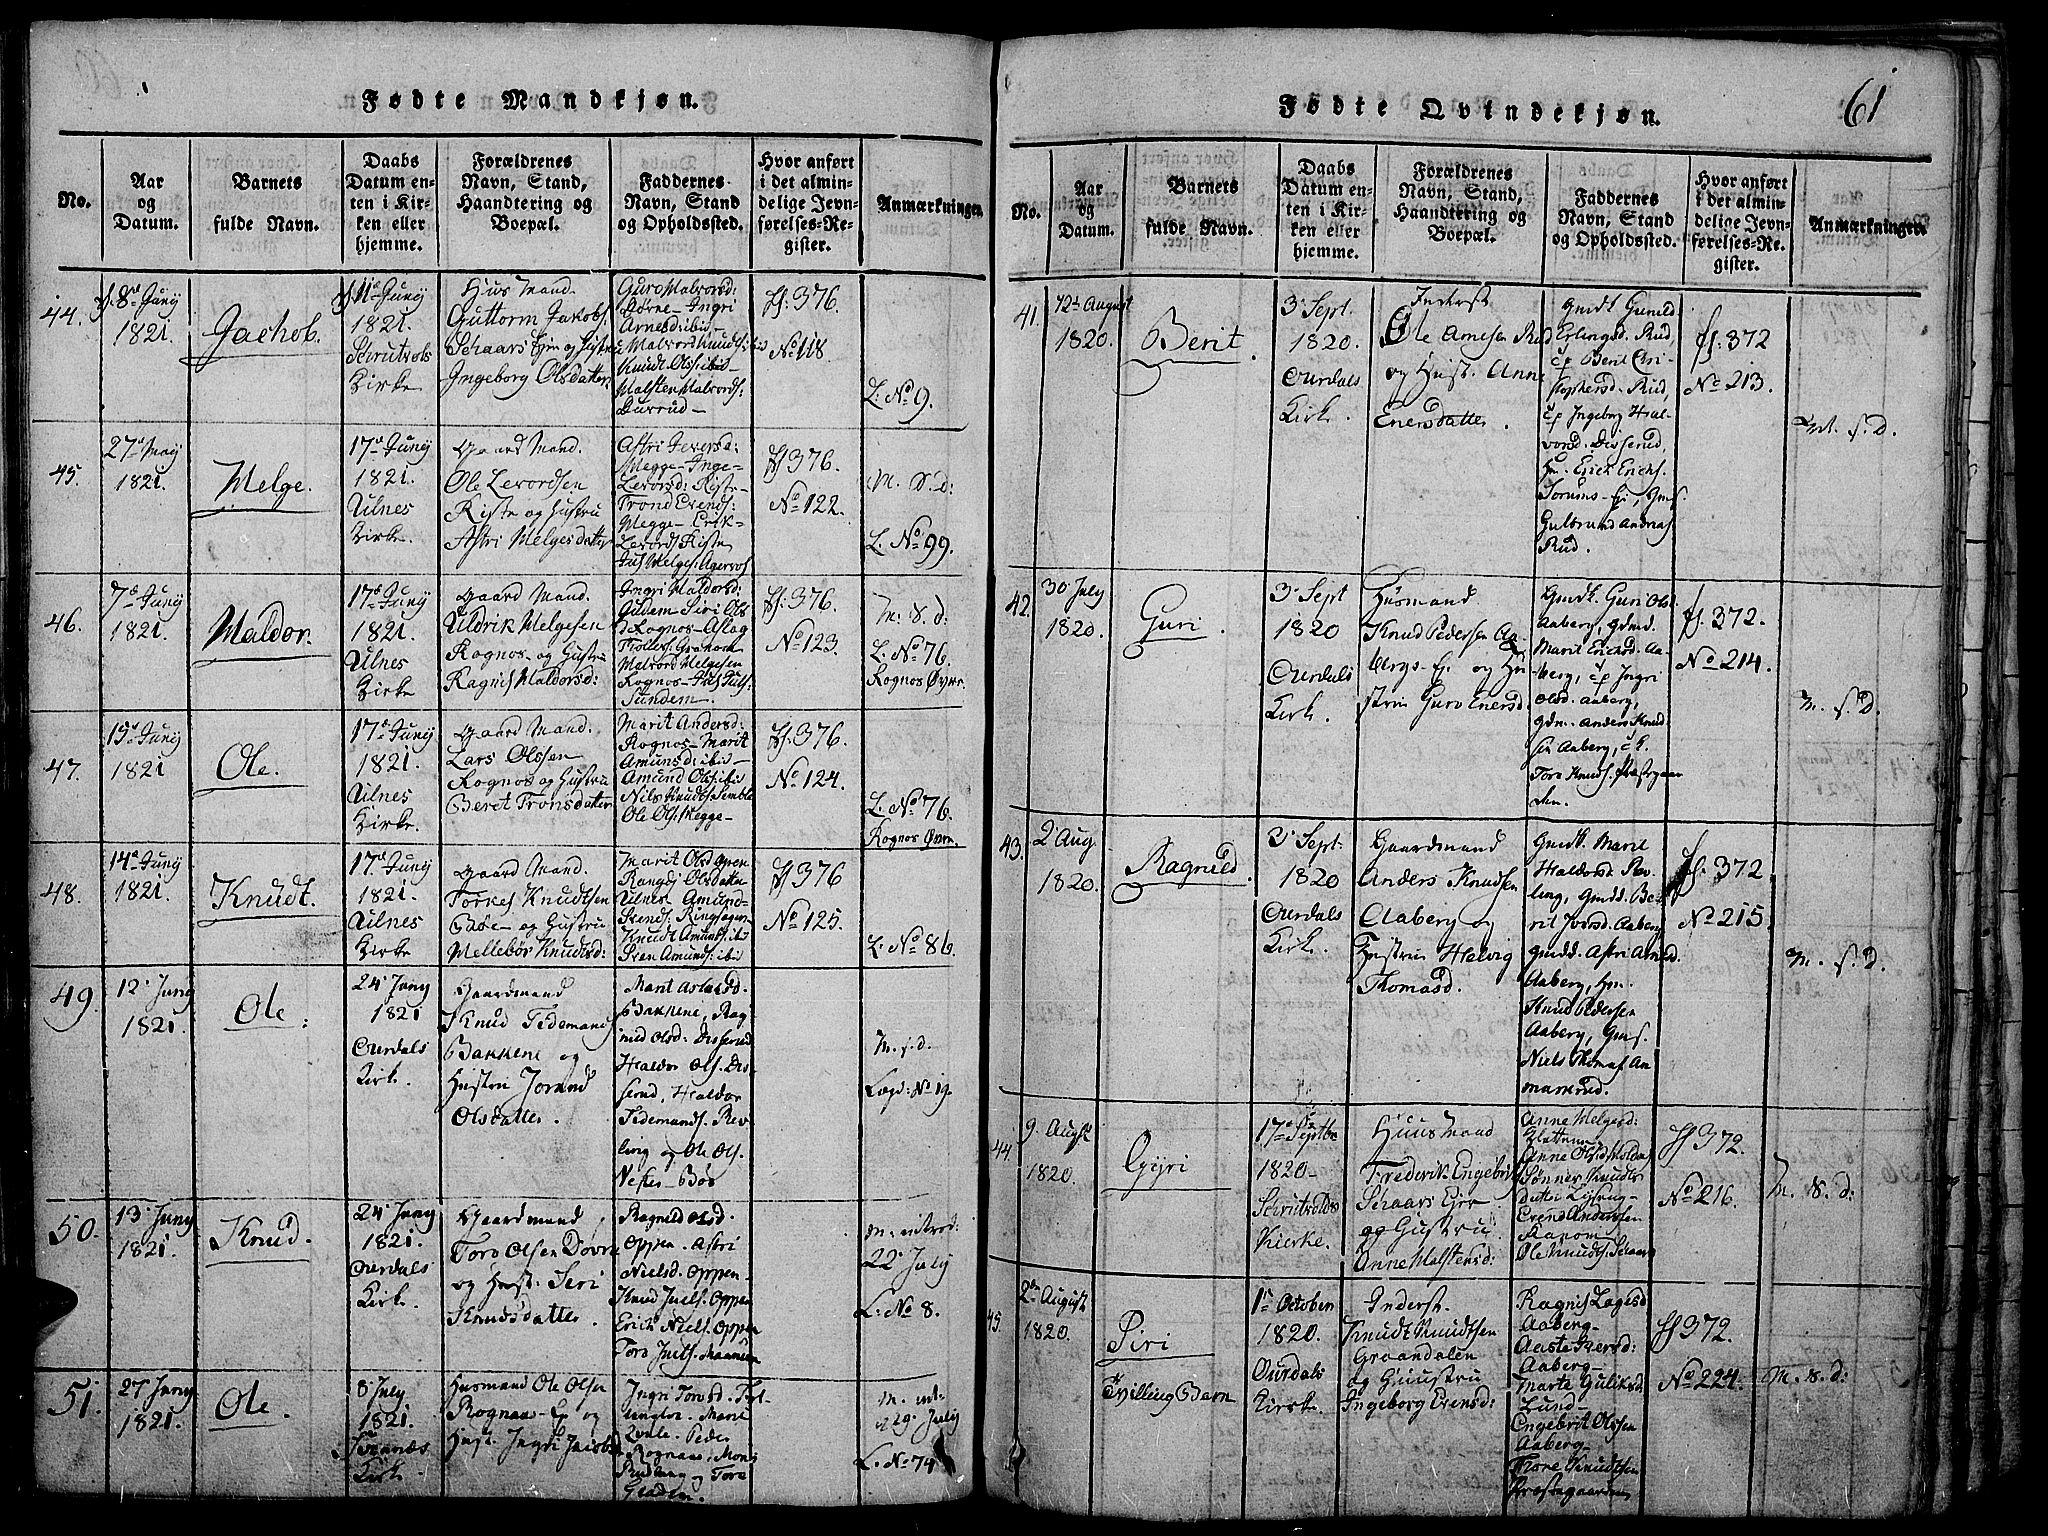 Fødte Mandkjøn.
No.
Aar
og
Datum.
Barnets
fulde Navn.
Daabs
Datum en-
ten i Kir-
ken eller
hjemme.
Forældrenes
Navn, Stand,
Haandtering og
Boepæl.
Faddernes
Navn, Stand
og Opholdssted.
Hvor anført
i det almin-
delige Jevn-
førelses-Re-
gister.
Anmærkninger.
44.
8de Juny
1821.
Jachob.
11te Juny
1821.
Schrutvols
Kirke
Huus Mand.
Guttorm Jakobs
Schaars Eyn og Hustru
Ingeborg Olsdatter
Guro Halvorsd:
Børne - Ingri
Arnesd: ibid
Halvord Knuds: ibid
Knudt Ols: ibid
Halsten Halvords:
ff: 376.
No 118.
L: No 9.
45.
27de May
1821.
Helge.
17de Juny
1821.
Ulnes
Kirke.
Gaard Mand.
Ole Levordsen
Riste og Hustru
Astri Helgesdatter
Astri Iversd:
Hegge - Inge-
Levorsd: Riste
Trond Evends:
Hegge - Erik
Levords Riste
ff 376.
No 122.
M. S. D:
L. No 99.
46.
7de Juny
1821.
Haldor.
17de Juny
1821.
Ulnes
Kirke
Gaard Mand.
Uldrik Helgesen
Rognos - og Hustru
Ragnis Haldorsd:
Ingri Haldorsd:
Siri Ols
d Rognos - Aslag
Halvord Helgesen
Rognos -
Sundem.
ff: 376.
No 123.
M: S. d:
L. No 76.
Rognos Øvre.
47.
15de Juny
1821
Ole.
17de Juny
1821.
Ulnes
Kirke.
Gaard Mand.
Lars Olssen
Rognos og Hustru
Beret Tronsdatter
Marit Andersd:
Rognos - Marit
Amunsd: ibid -
Amund Ols: ibid
Nils Knudts
Ole Ols: Hegge -
ff: 376.
No 124.
L: No 76.
Rognos Øvre.
48.
14de Juny
1821.
Knudt.
17de Juny
1821.
Ulnes
Kirke
Gaard Mand.
Torkes Knudtsen
Bøe - og Hustru
Mellebør Knudsd:
Marit Olsd
Rangdi Olsdatter
Ulnes Amund
Svends: Ringsager
Knudt Amunds: ibid
Sven Amunds: ibid
ff 376
No 125.
L. No 86.
49.
12te Juny
1821.
Ole.
24de Juny
1821
Ourdals
Kirk.
Gaardmand
Knud Tidemands
Bakkene og
Hustri Jorund
Olsdatter.
Marit Aslaksd.
Bakkene, Rag-
nild Olsd: Disserud
Haldor Ols. Dis-
serud, Haldor
Tidemands. Rev-
ling og Ole Ols.
Nefes - Bøe
M. s. d.
Løp: No 19
50.
13de Juny
1821.
Knud.
24de Juny
1821.
Ourdals
Kirk.
Gaardmand
Tore Olsen Døvre
og Hust: Siri
Knudsdatter.
Ragnild Olsd.
Oppen. Astri
Nielsd. Oppen
Knud Juels. Oppen
Erick Niels. Oppen
M: introd:
22de July
L. No 8.
51.
27 Juny
1821.
Ole.
8 July
1821.
Svennes
Kirk
Husmand Ole Olsen
Rognaas - Ej og
Hust. Ingri Jacobsd
Ingri Torsd.
Marit
Peder
Rognaas,
og Tore
M. int.
29. July
L. No 74
61
Fødte Qvindekjøn.
No.
Aar
og
Datum.
Barnets
fulde Navn.
Daabs
Datum en-
ten i Kir-
ken eller
hjemme.
Forældrenes
Navn, Stand,
Haandtering og
Boepæl.
Faddernes
Navn, Stand
og Opholdssted.
Hvor anført
i det almin-
delige Jevn-
førelses-Re-
gister.
Anmærkninger.
41.
12te August
1820.
Berit.
3de Sept.
1820.
Ourdals
Kirk.
Inderst
Ole Arnesen Rud
og Hust. Anne
Enersdatter.
Gmdk Gunild
Erlingsd. Rud,
Berit Chri-
stophersd. Rud,
Ingeborg Hal-
vorsd. Disserud,
Hm. Erick Ericks.
Gulbrand Andreas
Rud.
ff. 372
No 213.
M. s. D.
42.
30 July
1820.
Guri.
3de Sept
1820
Ourdals
Kirk.
Husmand
Knud Pedersen Aa-
bergs - Ej og Hu-
strue Guro Enersd.
Gmdk. Guri Olsd.
Aaberg, Gdmd.
Marit Ericksd. Aa-
berg, Ingri
Olsd. Aaberg,
Gdm. Anders Knud-
sen Aaberg,
Tore Knuds. Præstegaar-
den.
ff. 372.
No 214.
M. s. D.
43.
2 Aug.
1820.
Ragnild.
3de Sept.
1820
Ourdals
Kirk.
Gaardmand
Anders Knudsen
Aaberg og
Hustrue Helvig
Thomasd.
Gmdk. Marit
Haldorsd. Rev-
ling, Gmdd. Be-
rit Iversd. Aaberg
Gmdd. Astri Arnesd.
Aaberg, Hm.
Knud Pedersen
Aaberg, Gms.
Niels Thomas.
ff. 372
No 215.
M. s. D.
44
9. August
1820.
Gyri
17de Septbr
1820.
Schrutvolds
Kierke.
Huusmand
Frederik Engebrits
Schaars Eier
og Hustru
Anne Halstensd:
Anne Helgesd:
Anne Olsd
Sønner Knudts
datter
Evend Andersen
Ranom
Ole Knudts: Schaars
ff 372.
No 216.
M. S. d:
45.
2den August
1820.
Siri
Tvilling Barn
1ste October
1820.
Ourdals
Kirke.
Inderst.
Knudt Knudtsen
Graandalen
og Huustru
Ingeborg Evensd:
Ragnis Lagesd
Aaberg -
Aaste Iversd:
Aaberg -
Marte Guliksd
Lund -
Engebrit Olssen
Aaberg -
Thore Knudtsen
Præstegaarden
ff 372.
No 224.
M. S. d: